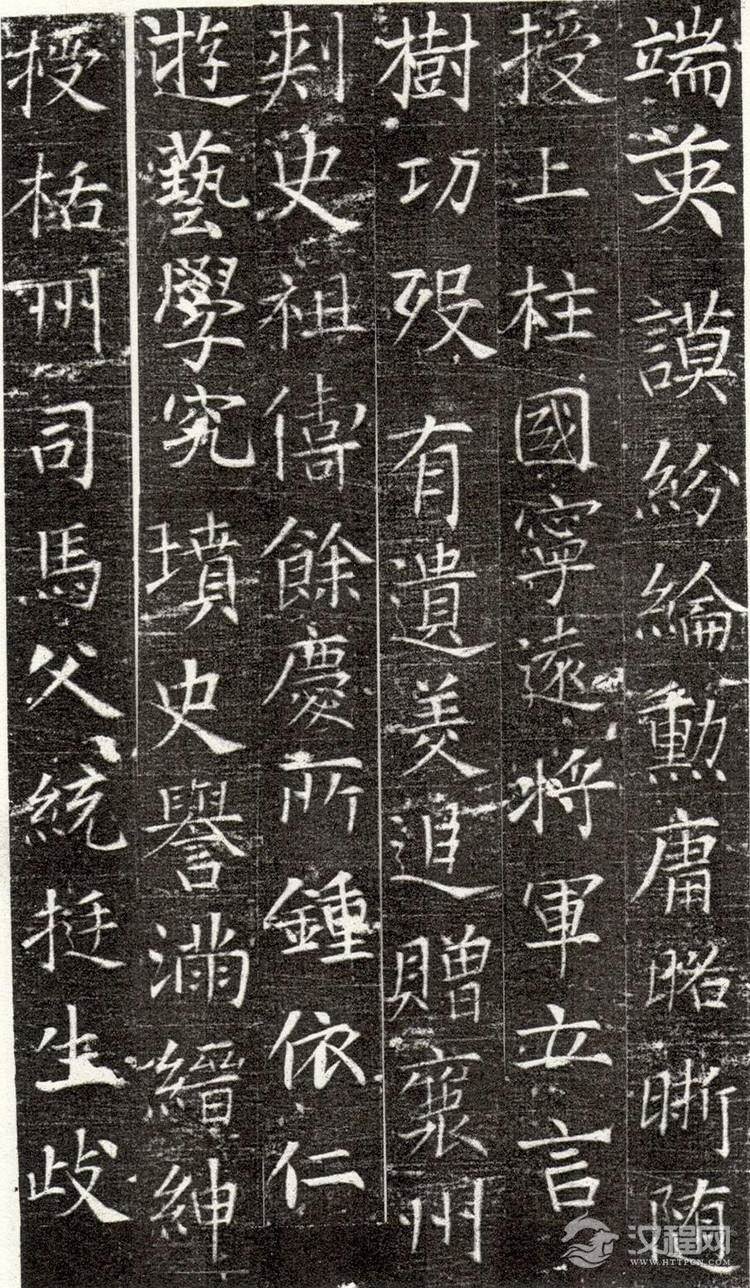 端英謨紛綸勳庸昭晰随
授上柱國寧遠将軍立言
樹功歿有遺美追贈襄州
刺史祖儔餘慶所鍾依仁
遊藝學究墳史譽滿縉紳
授栝州司馬父統挺生歧
汉程网
WWW.HTTPCN.COM